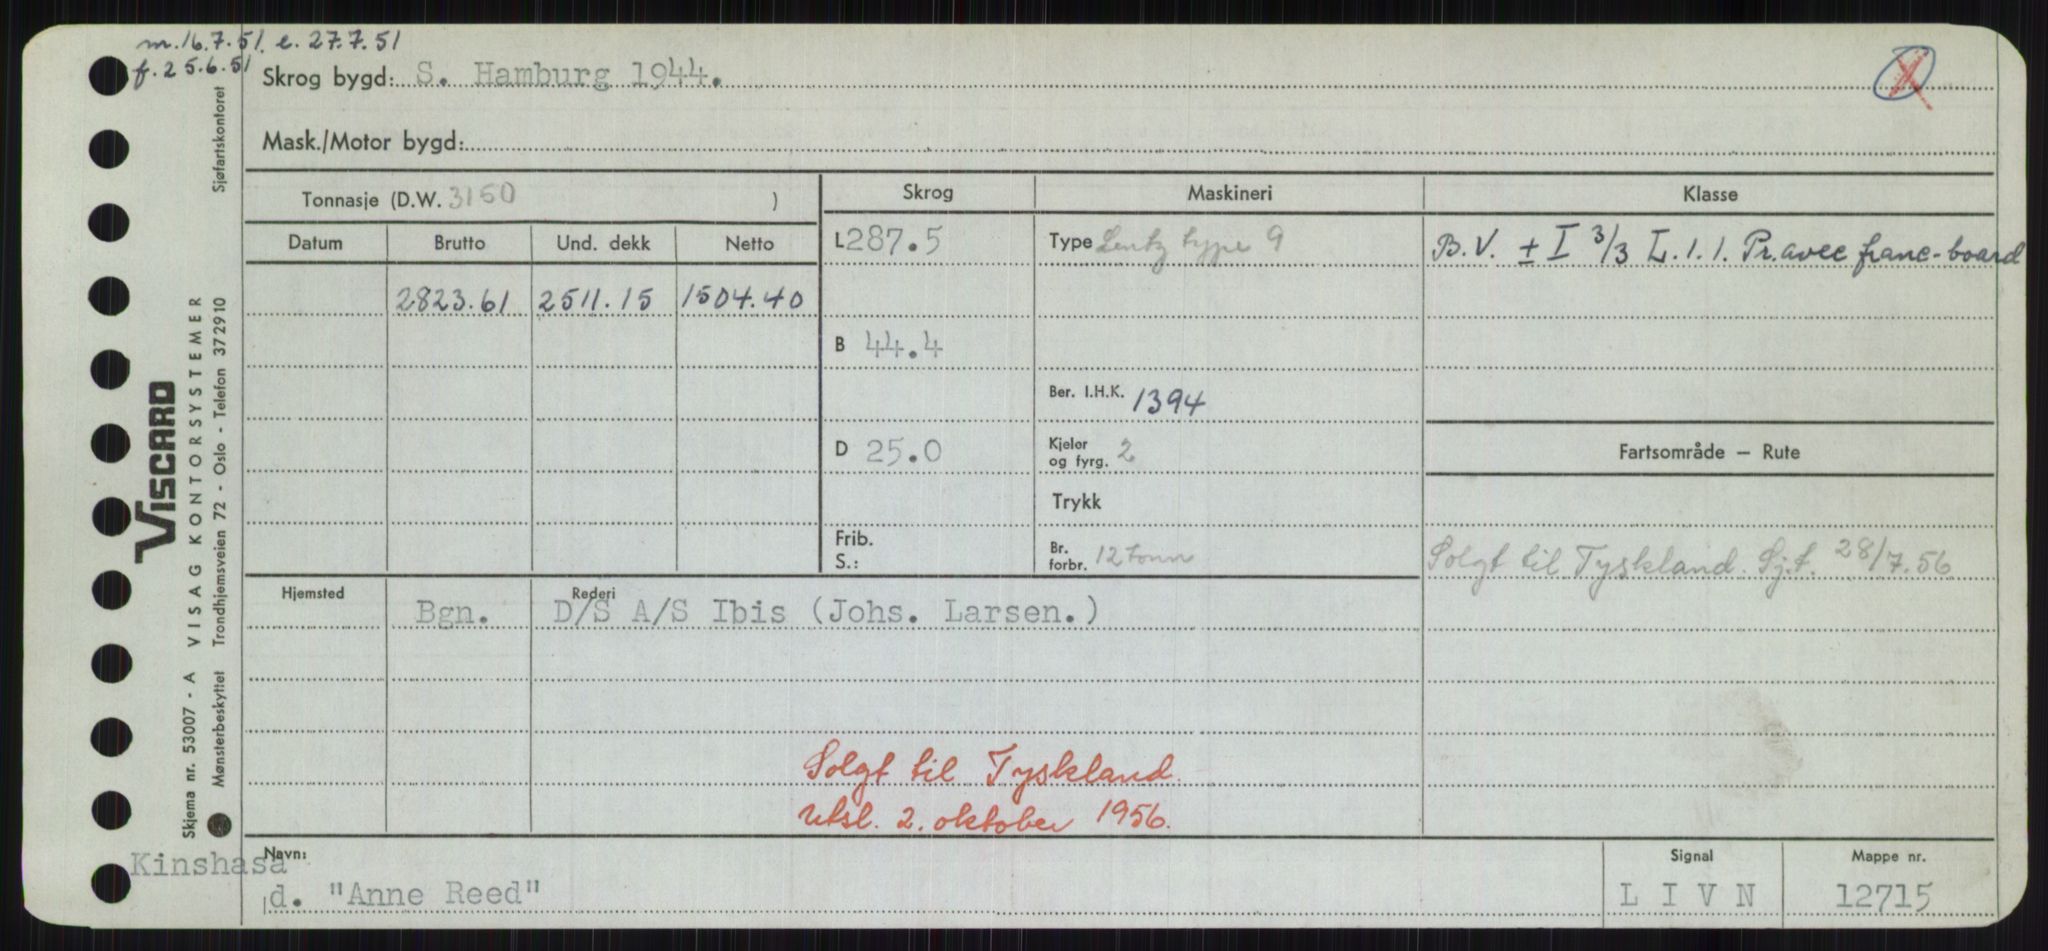 m.16.7.51. e. 27.7.51
f. 25.6.51
Skrog bygd: S. Hamburg 1944.
Mask./Motor bygd:
Tonnasje (D.W. 3150 )
Skrog Maskineri Klasse
Datum Brutto Und. dekk Netto
2823.61 2511.15 1504.40
L 287.5
B 44.4
D 25.0
Frib.
S.:
Type Lentz type 9
Ber. I.H.K. 1394
Kjeler
og fyrg. 2
Trykk
Br.
forbr. 12 tonn
B.V. ± I 3/3 L.1.1. Pr. avec franc-board
Fartsområde — Rute
Solgt til Tyskland. Sj.f. 28/7.56
Hjemsted Rederi
Bgn. D/S A/S Ibis (Johs. Larsen.)
Solgt til Tyskland.
utsl. 2. oktober 1956.
Navn:
Kinshasa
d. "Anne Reed"
Signal
L I V N
Mappe nr.
12715
VISCARD
VISAG KONTORSYSTEMER
Skjema nr. 53007 - A
Mønsterbeskyttet Trondhjemsveien 72 - Oslo - Telefon 372910
Sjøfartskontoret